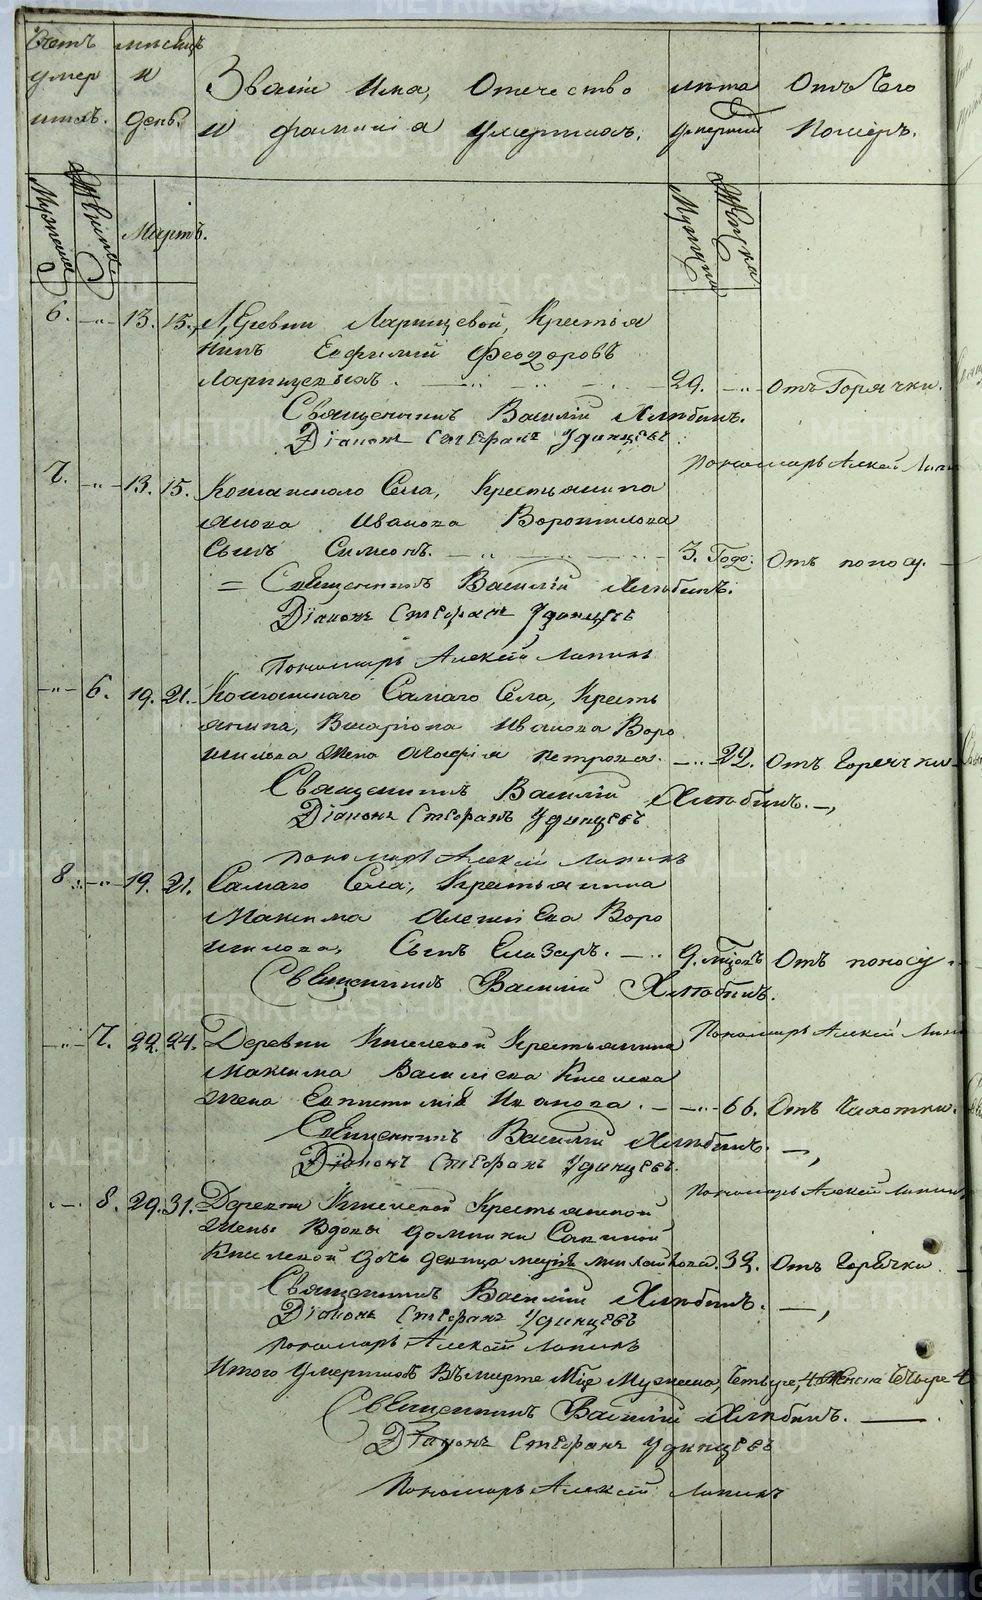 Счетъ умер шихъ.
мѣсяцъ и день.
Званіе Има, Отечество
и фамилія Умершихъ.
лѣта умершихъ
Отъ Чего Померъ.
Мужеска Женска
Мартъ.
Мужеска Женска
6. -„- 13. 15. Деревни Ларищевой, Крестья
нинъ Евфимий Феодоровъ
Ларищевыхъ. 29. -„- Отъ Горячки.
Священникъ Василій Хлѣбинъ.
Діаконъ Стефанъ Удинцевъ
Пономарь Алексей
7. -„- 13. 15. Села, Крестьянина
Ивана
Сынъ Симеонъ. 3. Годо: Отъ поносу.
Священникъ Василій Хлѣбинъ.
Діаконъ Стефанъ Удинцевъ
Пономарь Алексей Лапинъ
-„- 6. 19. 21. Самаго Села, Кресть
янина, Иванова Воро
шилова жена Петрова. -„- 22. Отъ Горячки
Священникъ Василій Хлѣбинъ.
Діаконъ Стефанъ Удинцевъ
Пономарь Алексей Лапинъ
8. -„- 19. 21. Самаго Села, Крестьянина
Максима Алексіева Воро
шилова, Сынъ Елазаръ. 9. Отъ поносу.
Священникъ Василій Хлѣбинъ.
Пономарь Алексей
-„- 7. 22. 24. Деревни Киселевой Крестьянина
Максима Василіева Киселева
жена Иванова. -„- 66. Отъ Чахотки.
Священникъ Василій Хлѣбинъ.
Діаконъ Стефанъ Удинцевъ.
Пономарь Алексей Лапинъ
8. 29. 31. Деревни Киселевой Крестьянской
Жены Вдовы Домники Савиной
Киселевой дочь девица 32. Отъ Горячки.
Священникъ Василій Хлѣбинъ.
Діаконъ Стефанъ Удинцевъ
Пономарь Алексей Лапинъ
Итого Умершихъ Въ марте Мужеска, Четыре, 4 Женска Четыре 4
Священникъ Василій Хлѣбинъ.
Діаконъ Стефанъ Удинцевъ
Пономарь Алексей Лапинъ
METRIKI.GASO-URAL.RU